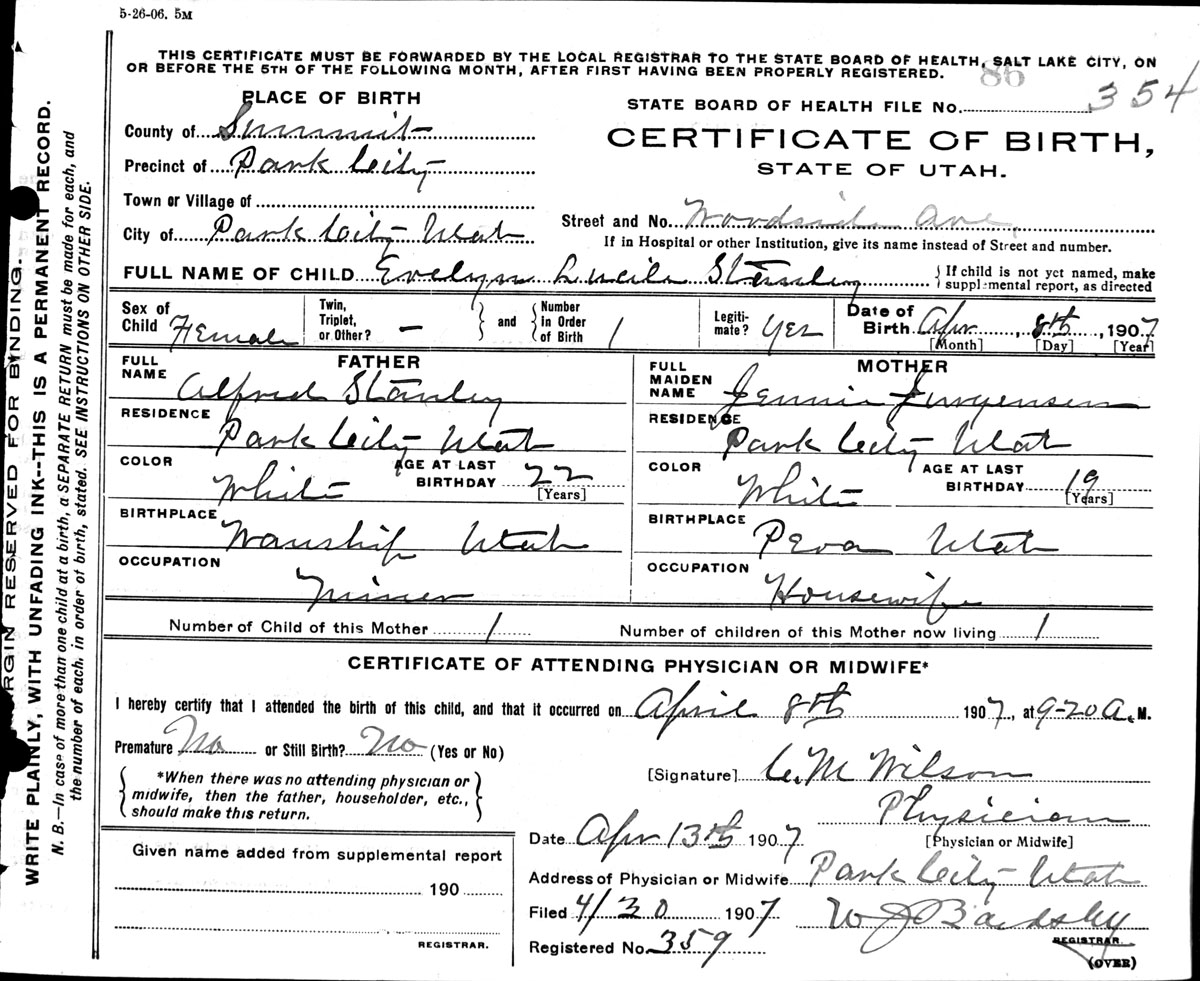 5-26-06. 5M
THIS CERTIFICATE MUST BE FORWARDED BY THE LOCAL REGISTRAR TO THE STATE BOARD OF HEALTH, SALT LAKE CITY, ON
OR BEFORE THE 5TH OF THE FOLLOWING MONTH, AFTER FIRST HAVING BEEN PROPERLY REGISTERED.
86
PLACE OF BIRTH
STATE BOARD OF HEALTH FILE No. 354
County of Summit
CERTIFICATE OF BIRTH,
Precinct of Park City
STATE OF UTAH.
Town or Village of
Street and No. Woodside Ave
City of Park City Utah
If in Hospital or other Institution, give its name instead of Street and number.
FULL NAME OF CHILD Evelyn Lucile Stanley
If child is not yet named, make
supplemental report, as directed
Sex of Child Female
Twin, Triplet, or Other? —
and
Number in Order of Birth 1
Legiti-mate? Yes
Date of Birth Apr, 8th, 1907
[Month] [Day] [Year]
FATHER
FULL NAME Alfred Stanley
RESIDENCE Park City Utah
COLOR White
AGE AT LAST BIRTHDAY 22 [Years]
BIRTHPLACE Wanship Utah
OCCUPATION Miner
MOTHER
FULL MAIDEN NAME Jennie Jurgensen
RESIDENCE Park City Utah
COLOR White
AGE AT LAST BIRTHDAY 19 [Years]
BIRTHPLACE Peoa Utah
OCCUPATION Housewife
Number of Child of this Mother 1
Number of children of this Mother now living 1
CERTIFICATE OF ATTENDING PHYSICIAN OR MIDWIFE*
I hereby certify that I attended the birth of this child, and that it occurred on April 8th 1907, at 9-20 A. M.
Premature No or Still Birth? No (Yes or No)
*When there was no attending physician or
midwife, then the father, householder, etc.,
should make this return.
[Signature] C. M Wilson
Physician
[Physician or Midwife]
Date Apr 13th 1907
Address of Physician or Midwife Park City Utah
Filed 4/30 1907
W J Bardsley
REGISTRAR
Registered No. 359
(OVER)
Given name added from supplemental report
190
REGISTRAR.
MARGIN RESERVED FOR BINDING.
WRITE PLAINLY, WITH UNFADING INK--THIS IS A PERMANENT RECORD.
N. B.—In case of more than one child at a birth, a SEPARATE RETURN must be made for each, and
the number of each, in order of birth, stated. SEE INSTRUCTIONS ON OTHER SIDE.